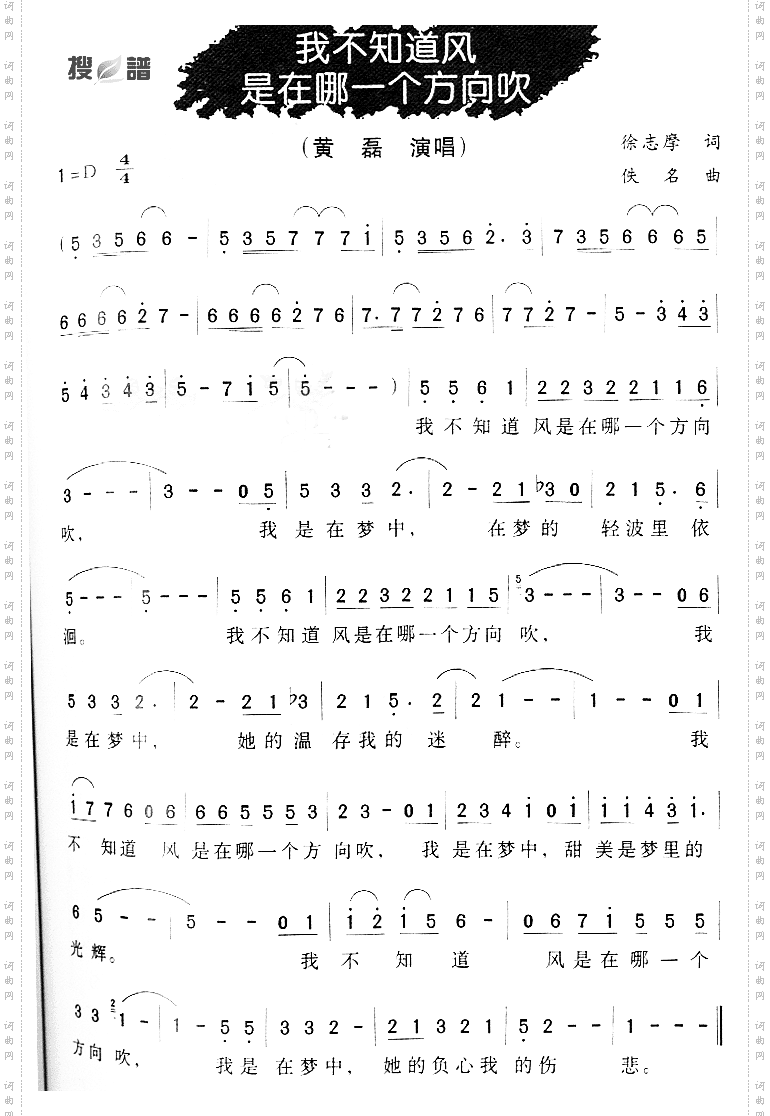 搜 譜
我不知道风
是在哪一个方向吹
(黄 磊 演唱)
徐志摩 词
1=D 4/4
佚 名 曲
(5 3 5 6 6 - | 5 3 5 7 7 7 1 | 5 3 5 6 2. 3 | 7 3 5 6 6 6 6 5
6 6 6 6 2 7 - | 6 6 6 6 2 7 6 | 7. 7 7 2 7 6 | 7 7 2 7 - | 5 - 3 4 3
5 4 3 4 3 | 5 - 7 1 5 | 5 - - - ) | 5 5 6 1 | 2 2 3 2 2 1 1 6
我 不 知 道 风是在哪一个方向
3 - - - | 3 - - 0 5 | 5 3 3 2. | 2 - 2 1 ♭3 0 | 2 1 5. 6
吹, 我 是 在 梦 中, 在 梦 的 轻 波 里 依
5 - - - 5 - - - | 5 5 6 1 | 2 2 3 2 2 1 1 5 | 5 3 - - - | 3 - - 0 6
洄。 我 不 知 道 风是在哪一个方向 吹, 我
5 3 3 2. | 2 - 2 1 ♭3 | 2 1 5. 2 | 2 1 - - | 1 - - 0 1
是 在 梦 中, 她 的 温 存 我 的 迷 醉。 我
1 7 7 6 0 6 | 6 6 5 5 5 3 | 2 3 - 0 1 | 2 3 4 1 0 1 | 1 1 4 3 1.
不 知道 风 是在哪一个方 向吹, 我 是在梦中, 甜 美是梦里的
6 5 - - | 5 - - 0 1 | 1 2 1 5 6 - | 0 6 7 1 5 5 5
光 辉。 我 不 知 道 风 是 在 哪 一 个
3 3 2 1 - | 1 - 5 5 | 3 3 2 - | 2 1 3 2 1 | 5 2 - - | 1 - - - ‖
方向 吹, 我是 在梦中, 她的负心我 的伤 悲。